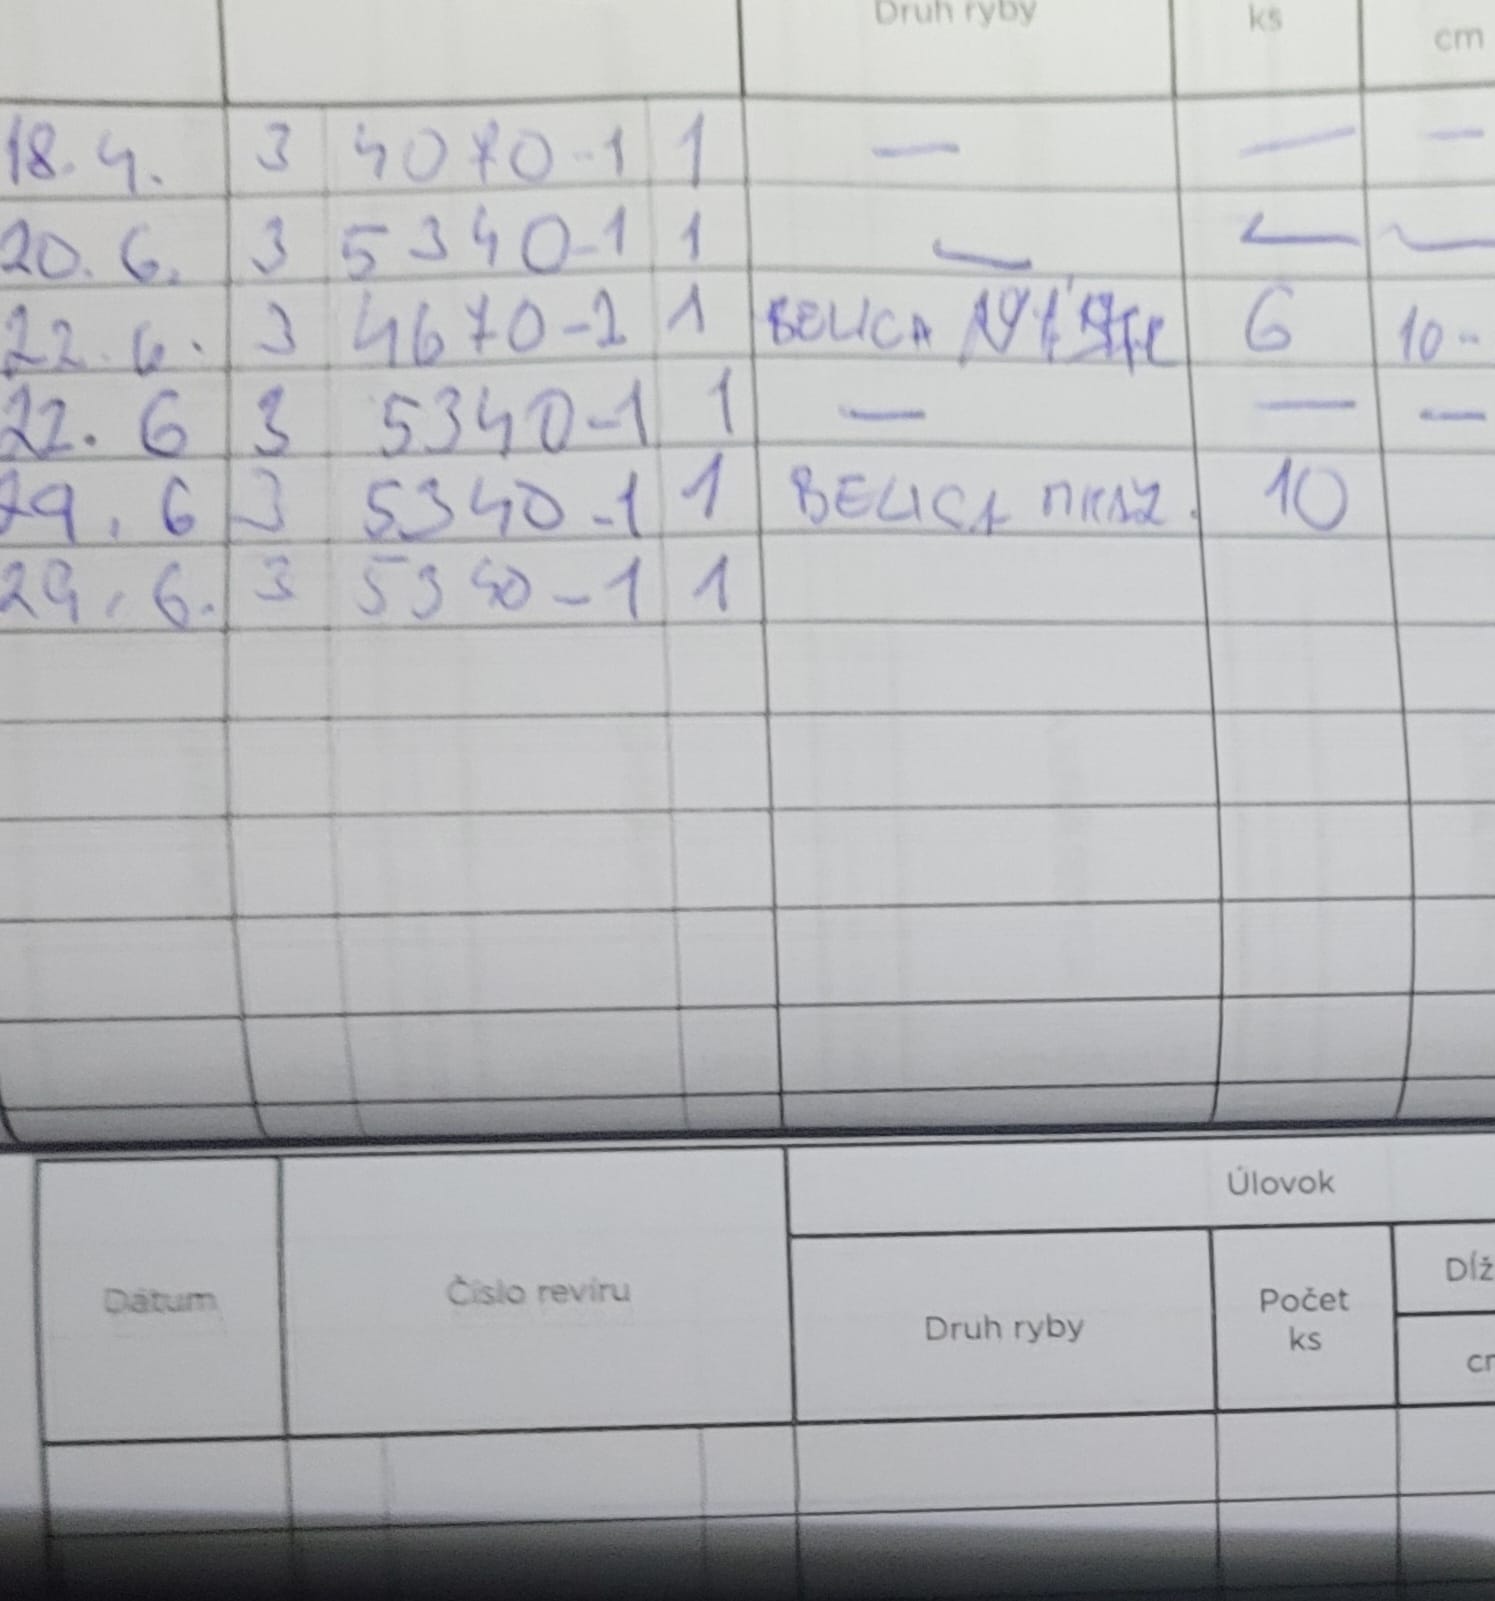 Druh ryby ks cm
18. 4. 3 4070-1 1 — — —
20. 6. 3 5340-1 1 — — —
22. 6. 3 4670-2 1 BELICA 6 10-
22. 6 3 5340-1 1 — — —
29. 6 3 5340-1 1 BELICA 10
29. 6. 3 5340-1 1
Úlovok
Dátum Číslo revíru Druh ryby Počet ks